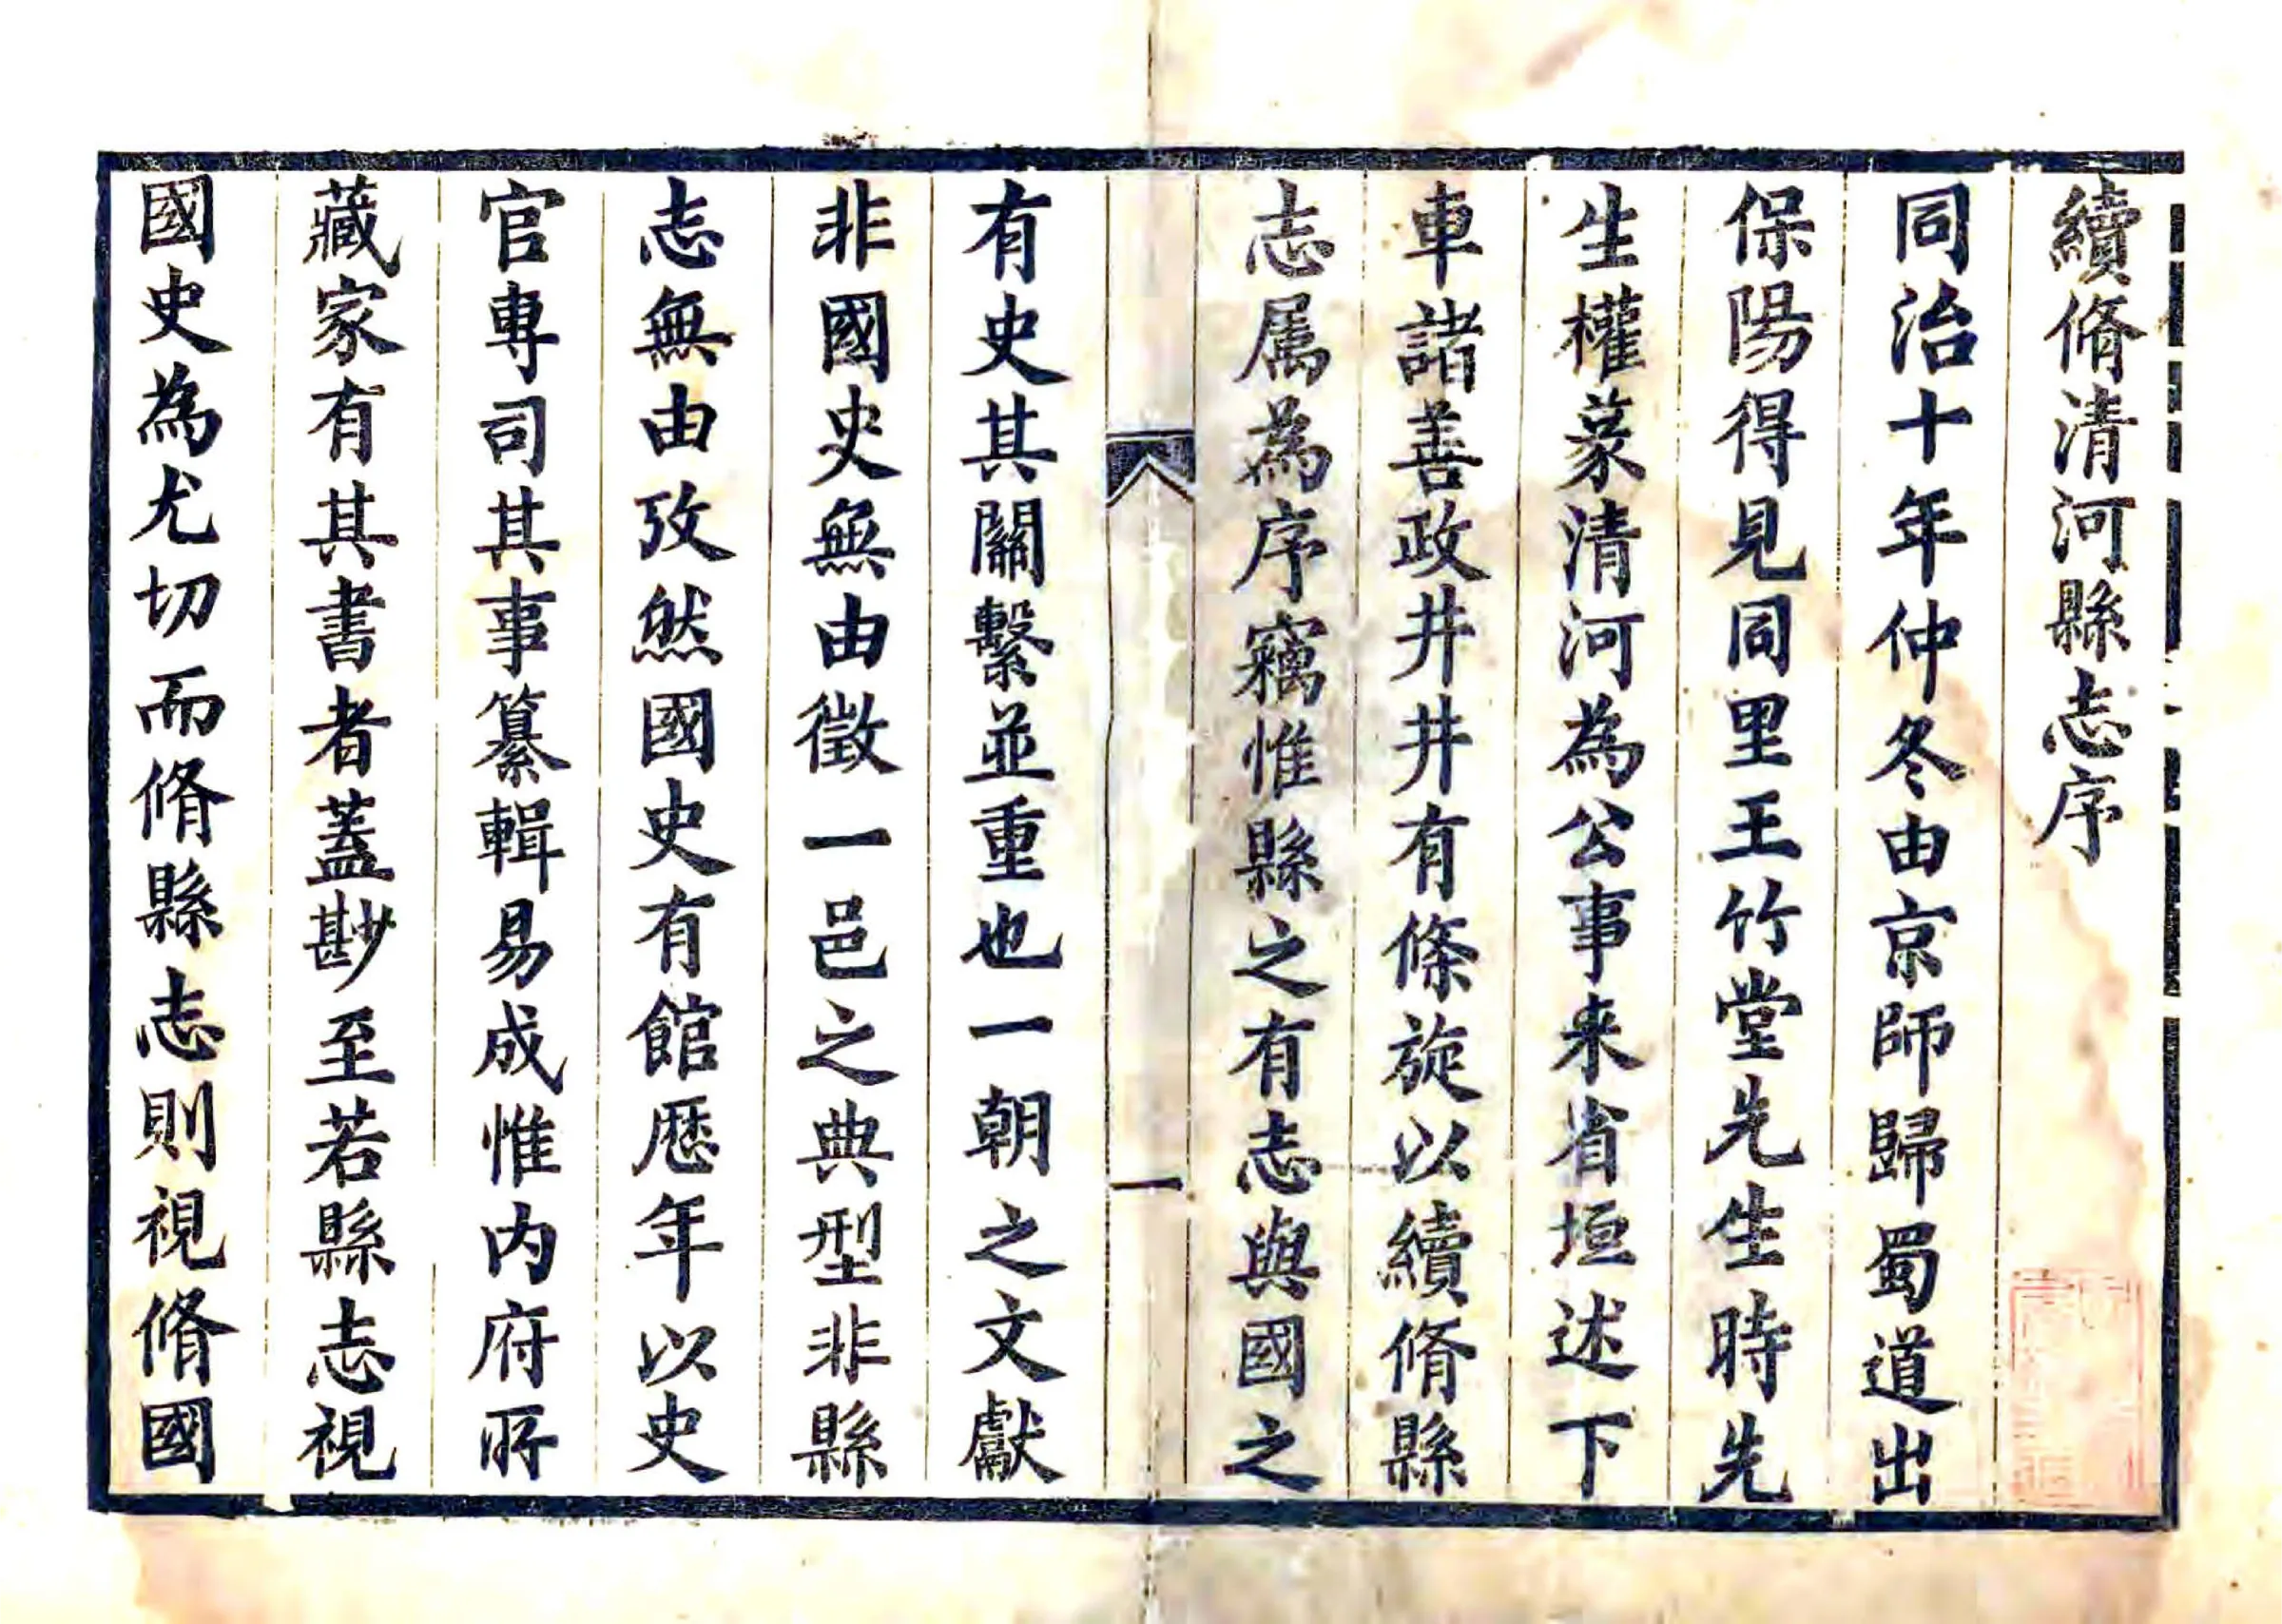 續脩清河縣志序
同治十年仲冬由京師歸蜀道出
保陽得見同里王竹堂先生時先
生權篆清河為公事来省垣述下
車諸善政井井有條旋以續脩縣
志属為序竊惟縣之有志與國之
一
有史其關繫並重也一朝之文獻
非國史無由徵一邑之典型非縣
志無由攷然國史有館歷年以史
官專司其事纂輯易成惟内府所
藏家有其書者蓋尠至若縣志視
國史為尤切而脩縣志則視脩國